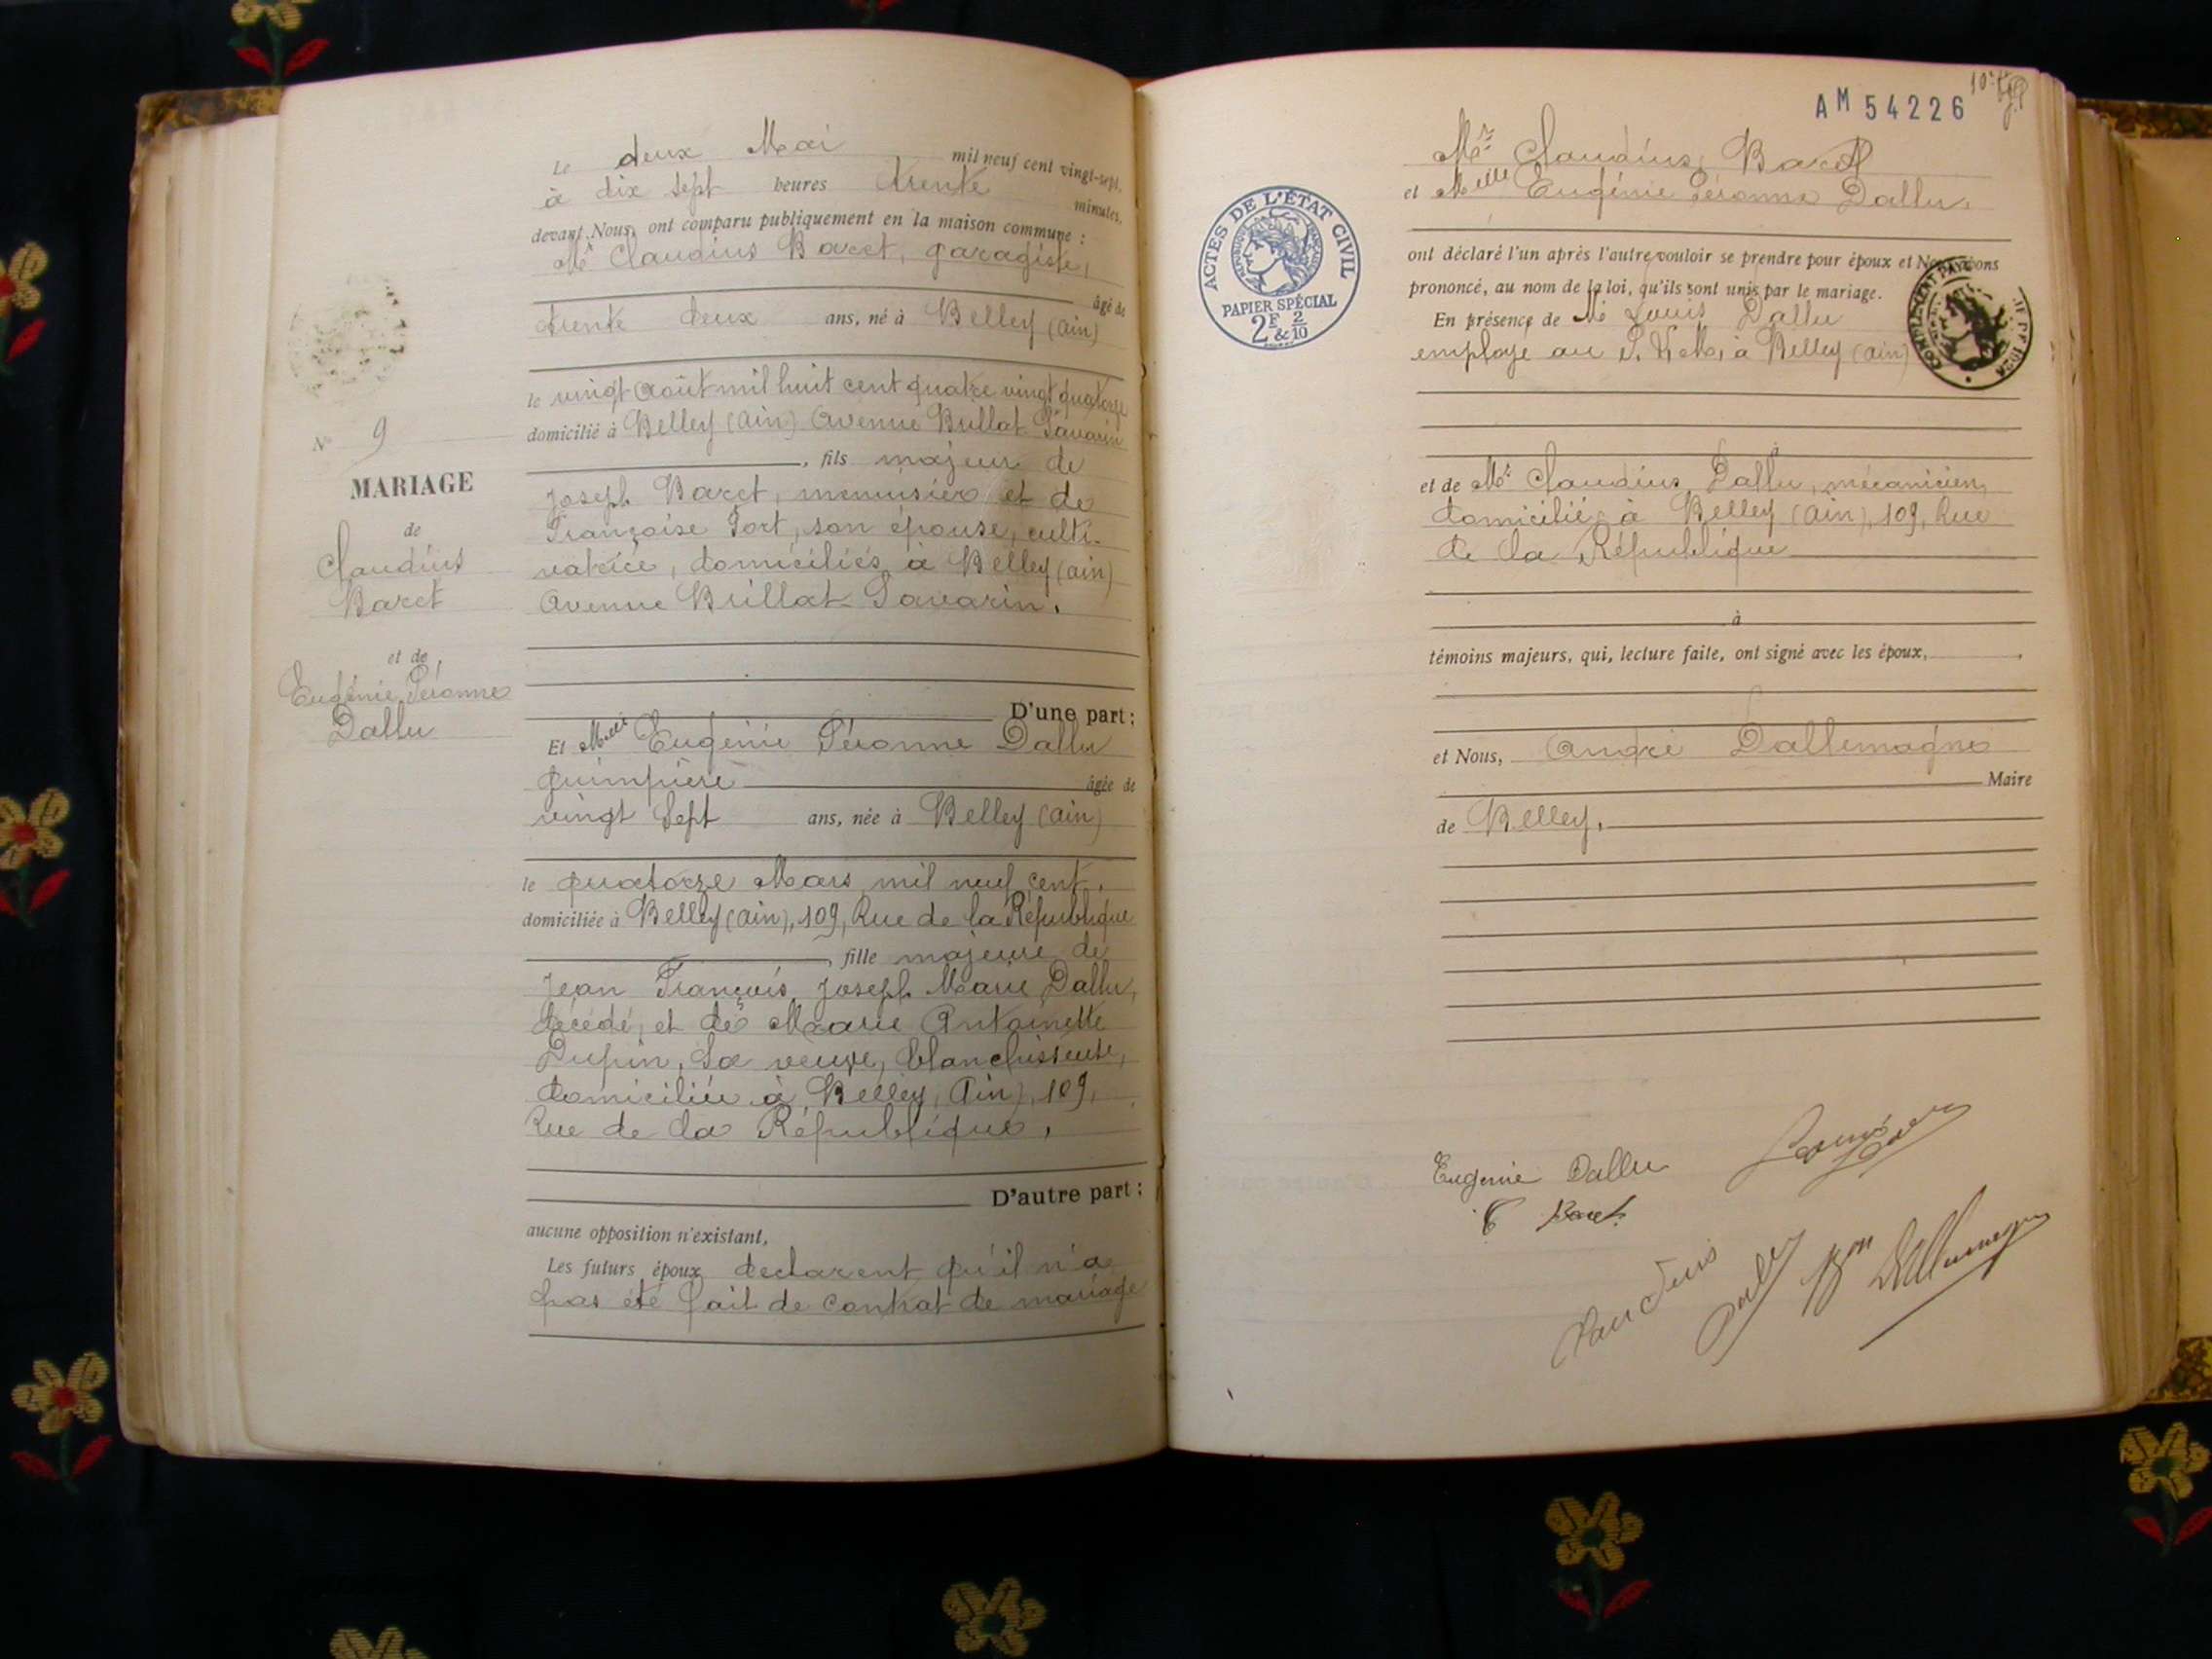 Le deux Mai mil neuf cent vingt-sept,
à dix sept heures trente minutes,
devant Nous, ont comparu publiquement en la maison commune :
Mr Claudius Baret, garagiste,
âgé de
trente deux ans, né à Belley (Ain)
le vingt Août mil huit cent quatre vingt quatorze
domicilié à Belley (Ain) Avenue Brillat Savarin
, fils majeur de
Joseph Baret, menuisier et de
Françoise Port, son épouse, culti-
vatrice, domiciliés à Belley (Ain)
Avenue Brillat-Savarin.
N° 9
MARIAGE
de
Claudius
Baret
et de
Eugénie Péronne
Dallu
D'une part ;
Et Melle Eugénie Péronne Dallu
guimpière âgée de
vingt sept ans, née à Belley (Ain)
le quatorze Mars mil neuf cent.
domiciliée à Belley (Ain), 109, Rue de la République
, fille majeure de
Jean François Joseph Marie Dallu,
décédé, et de Marie Antoinette
Dupin, sa veuve, blanchisseuse,
domiciliée à Belley, Ain), 109,
Rue de la République.
D'autre part ;
aucune opposition n'existant,
Les futurs époux déclarent qu'il n'a
pas été fait de contrat de mariage
AM 54226
Mr Claudius Baret
et Melle Eugénie Péronne Dallu.
ACTES DE L'ÉTAT CIVIL
RÉPUBLIQUE FRANÇAISE
PAPIER SPÉCIAL
2F & 2/10
ont déclaré l'un après l'autre vouloir se prendre pour époux et Nous avons
prononcé, au nom de la loi, qu'ils sont unis par le mariage.
COMPLEMENT PAYÉ
En présence de Mr Louis Dallu
employé au P.L.M. à Belley (Ain)
et de Mr Claudius Dallu, mécanicien,
domicilié à Belley (Ain), 109, Rue
de la République
à
témoins majeurs, qui, lecture faite, ont signé avec les époux,
et Nous, André Dallemagne
Maire
de Belley.
Eugenie Dallu
C Baret
Claudius
Dallu Bon Dallemagne